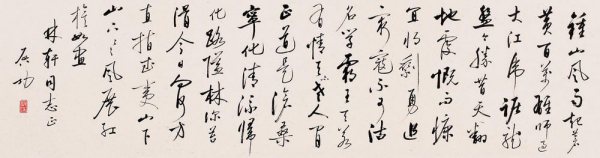 鍾山風雨起蒼
黄百萬雄師過
大江虎踞龍
盤今勝昔天翻
地覆慨而慷
宜將剩勇追
窮寇不可沽
名學霸王天若
有情天亦老人間
正道是滄桑
寧化清流歸
化路隘林深苔
滑今日向何方
直指武夷山下
山下〻〻風展紅
旗如畫
林軒同志正
启功